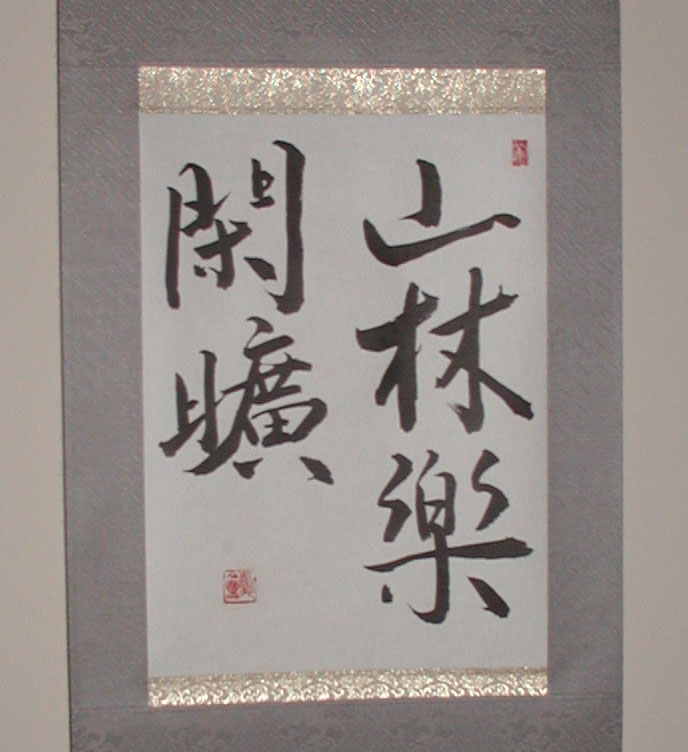 山林樂
閑曠